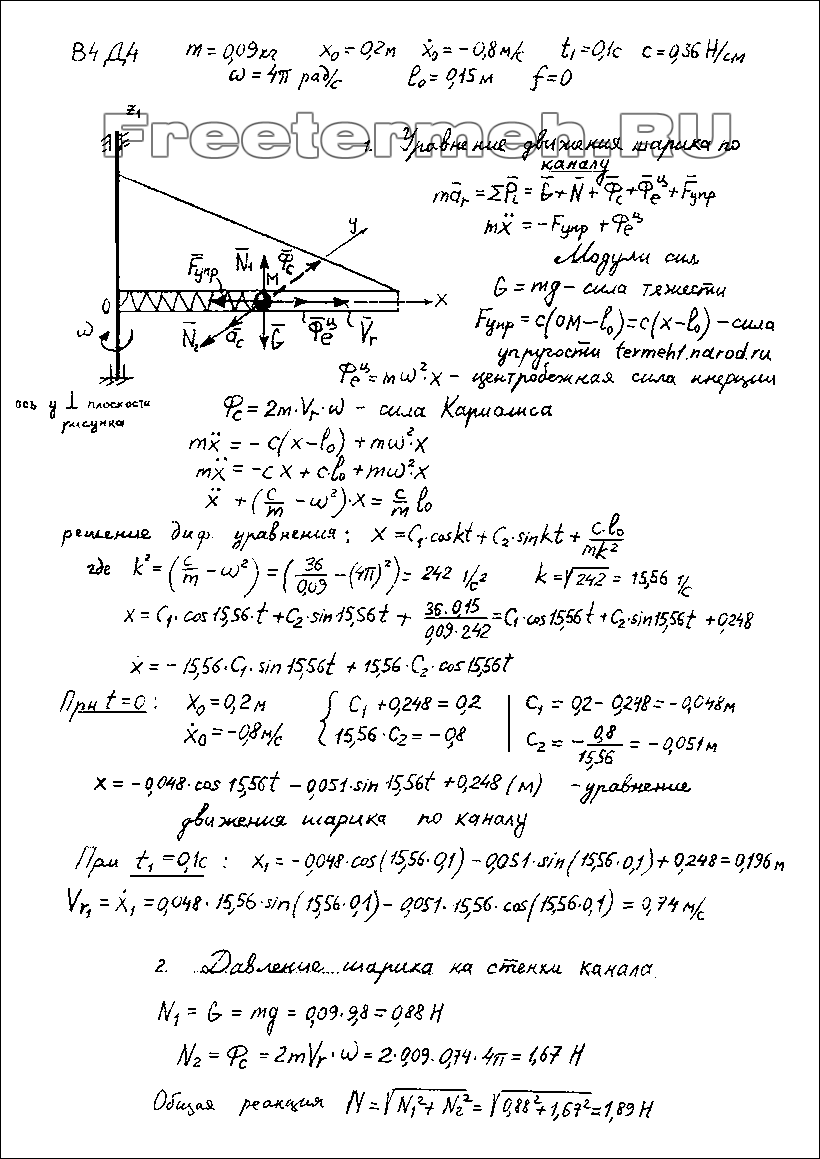 В4 Д4 m = 0,09 кг x₀ = 0,2 м ẋ₀ = -0,8 м/с t₁ = 0,1с c = 0,36 Н/см
ω = 4π рад/с l₀ = 0,15 м f = 0
Freetermeh.RU
z₁
y
F̄упр N̄₁ Φ̄c
M
O x
N̄₂ āc Ḡ Φ̄eᶸ V̄r
ω
ось y ⊥ плоскости
рисунка
1. Уравнение движения шарика по
каналу
mār = ΣP̄i = Ḡ + N̄ + Φ̄c + Φ̄eᶸ + F̄упр
mẍ = -Fупр + Φeᶸ
Модули сил
G = mg - сила тяжести
Fупр = c(OM - l₀) = c(x - l₀) - сила
упругости termeh1.narod.ru
Φeᶸ = mω²·x - центробежная сила инерции
Φc = 2m·Vr·ω - сила Кариолиса
mẍ = -c(x - l₀) + mω²·x
mẍ = -cx + c·l₀ + mω²·x
ẍ + (c/m - ω²)·x = c/m l₀
решение диф. уравнения: x = C₁·cos kt + C₂·sin kt + c·l₀/mk²
где k² = (c/m - ω²) = (36/0,09 - (4π)²) = 242 1/с² k = √242 = 15,56 1/с
x = C₁·cos 15,56·t + C₂·sin 15,56t + 36·0,15/0,09·242 = C₁·cos 15,56t + C₂·sin 15,56t + 0,248
ẋ = -15,56·C₁·sin 15,56t + 15,56·C₂·cos 15,56t
При t = 0: x₀ = 0,2 м { C₁ + 0,248 = 0,2 | C₁ = 0,2 - 0,248 = -0,048 м
ẋ₀ = -0,8 м/с { 15,56·C₂ = -0,8 | C₂ = -0,8/15,56 = -0,051 м
x = -0,048·cos 15,56t - 0,051·sin 15,56t + 0,248 (м) - уравнение
движения шарика по каналу
При t₁ = 0,1с: x₁ = -0,048·cos(15,56·0,1) - 0,051·sin(15,56·0,1) + 0,248 = 0,196 м
Vr₁ = ẋ₁ = 0,048·15,56·sin(15,56·0,1) - 0,051·15,56·cos(15,56·0,1) = 0,74 м/с
2. Давление шарика на стенки канала.
N₁ = G = mg = 0,09·9,8 = 0,88 Н
N₂ = Φc = 2mVr·ω = 2·0,09·0,74·4π = 1,67 Н
Общая реакция N = √N₁² + N₂² = √0,88² + 1,67² = 1,89 Н